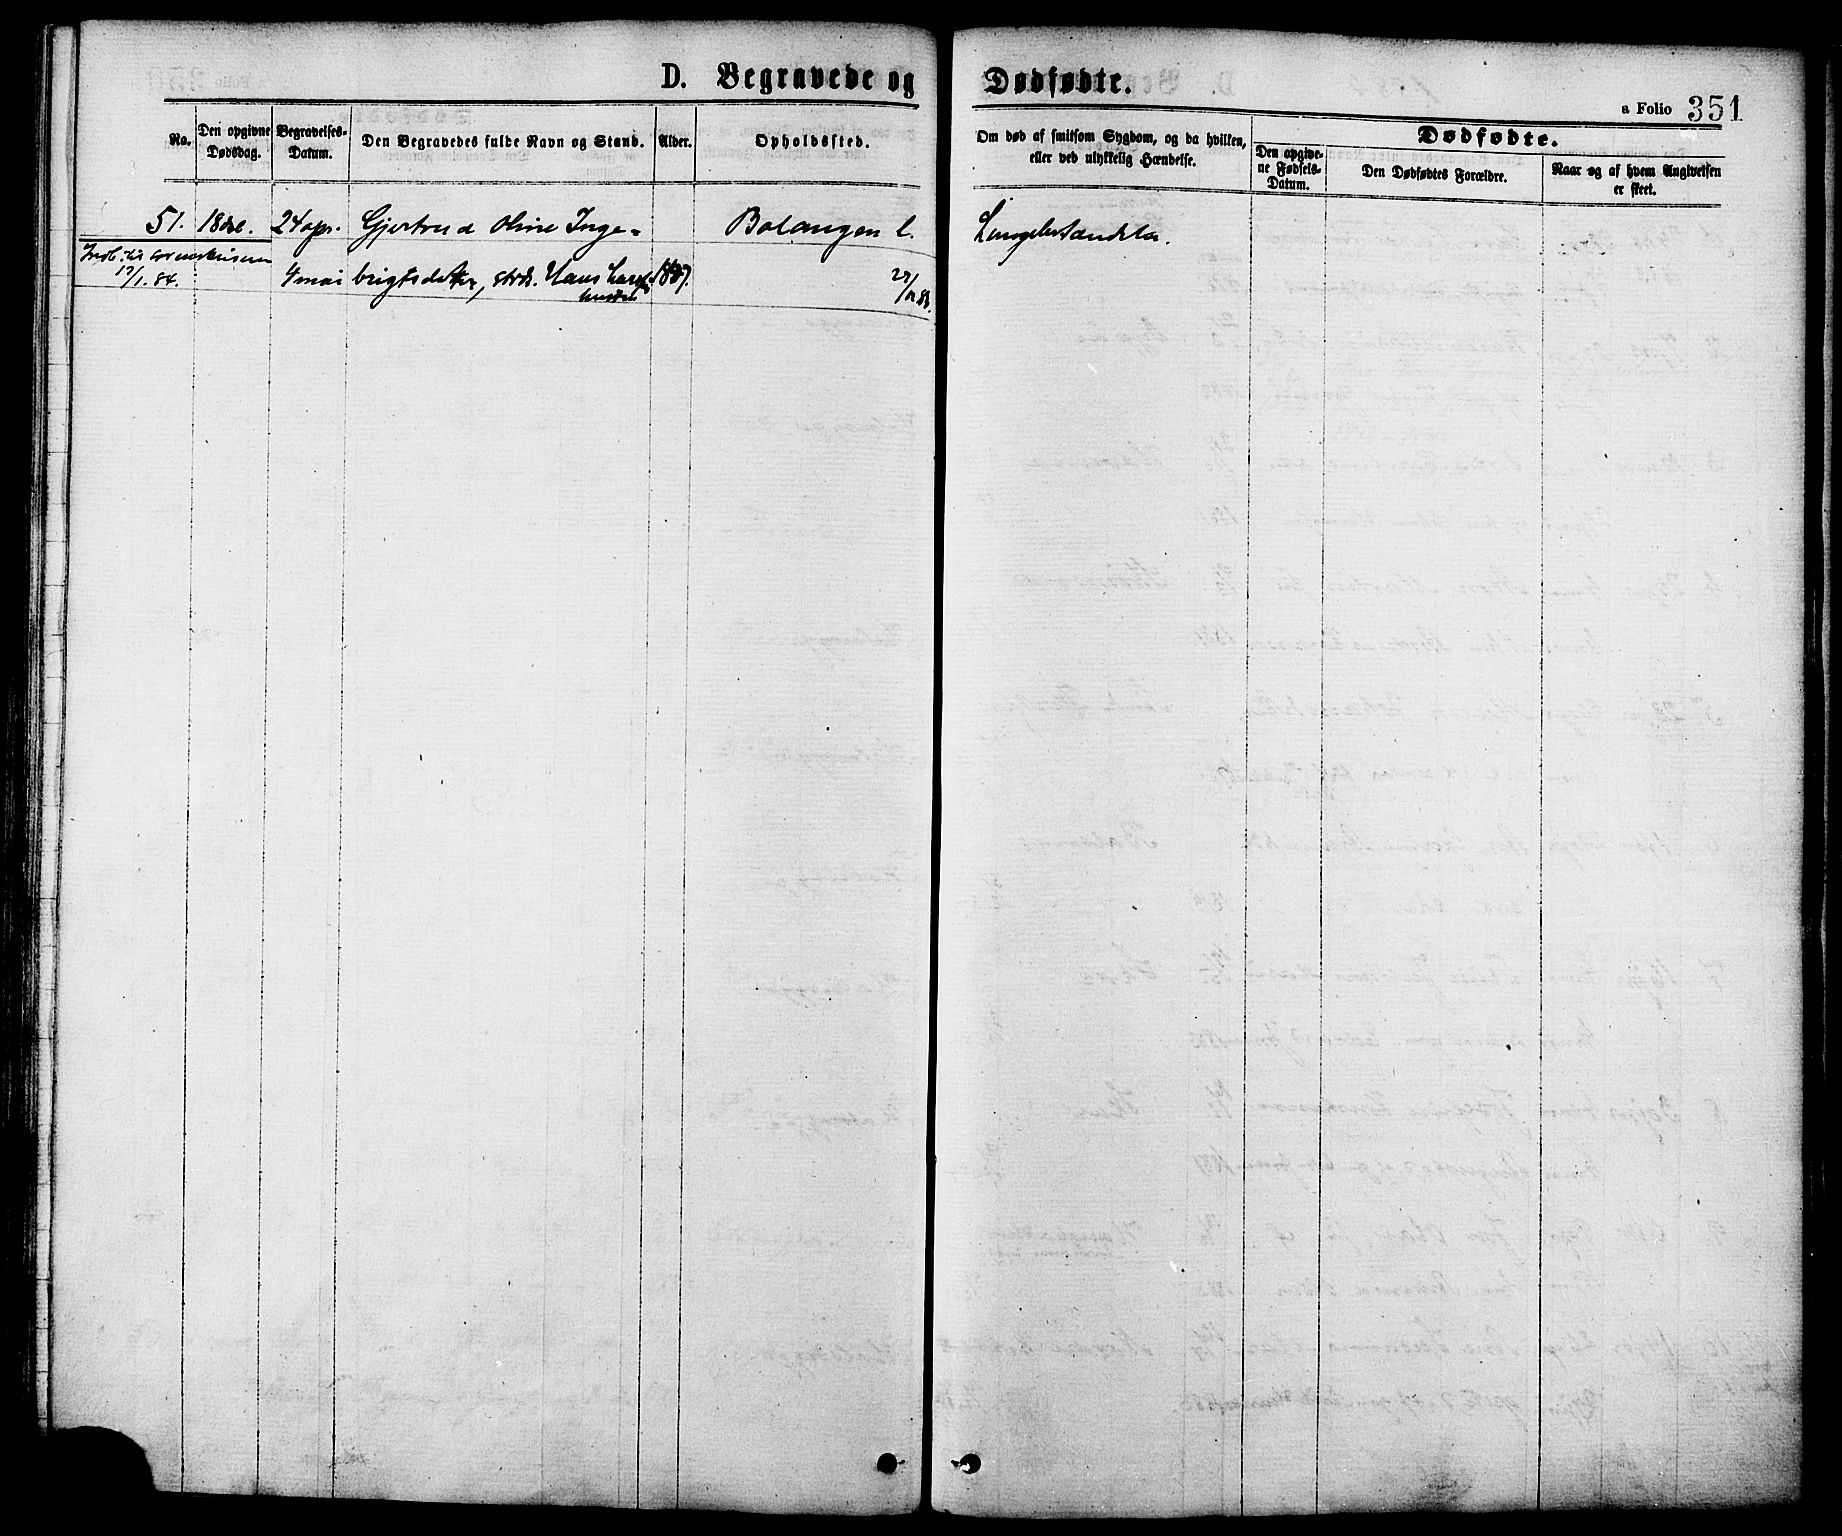 D. Begravede og Dødfødte.
a Folio 351
No.
Den opgivne Dødsdag.
Begravelses-Datum.
Den Begravedes fulde Navn og Stand.
Alder.
Opholdssted.
Om død af smitsom Sygdom, og da hvilken, eller ved ulykkelig Hændelse.
Dødfødte.
Den opgivne Fødsels-Datum.
Den Dødfødtes Forældre.
Naar og af hvem Angivelsen er skeet.
51. 18 24 apr. Gjertrud Oline Inge- Balangen
17/1.84. 4 mai brigtsdatter, Hans